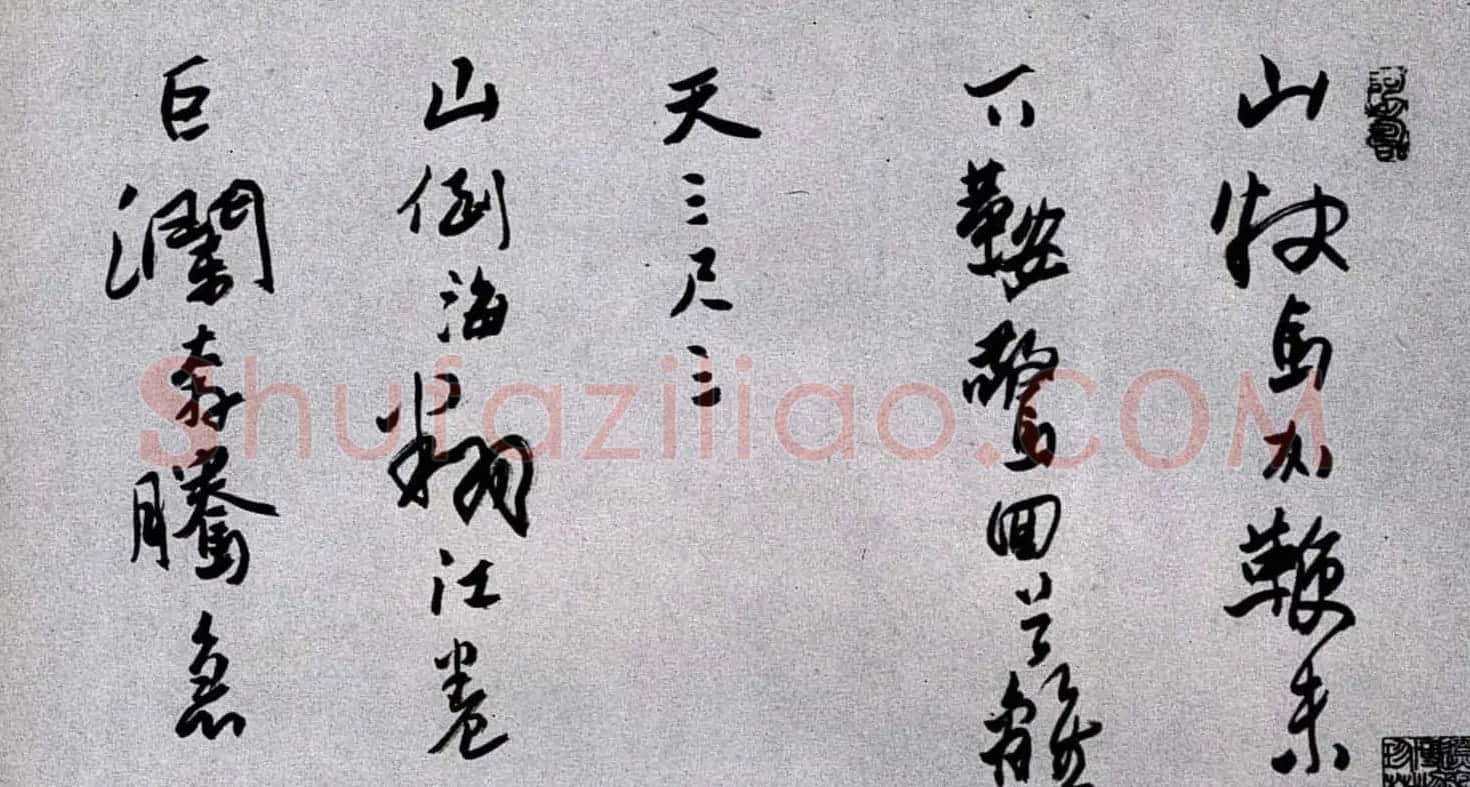 山快馬加鞭未
下鞍驚回首離
天三尺三
山倒海翻江卷
巨瀾奔騰急
Shufaziliao.COM